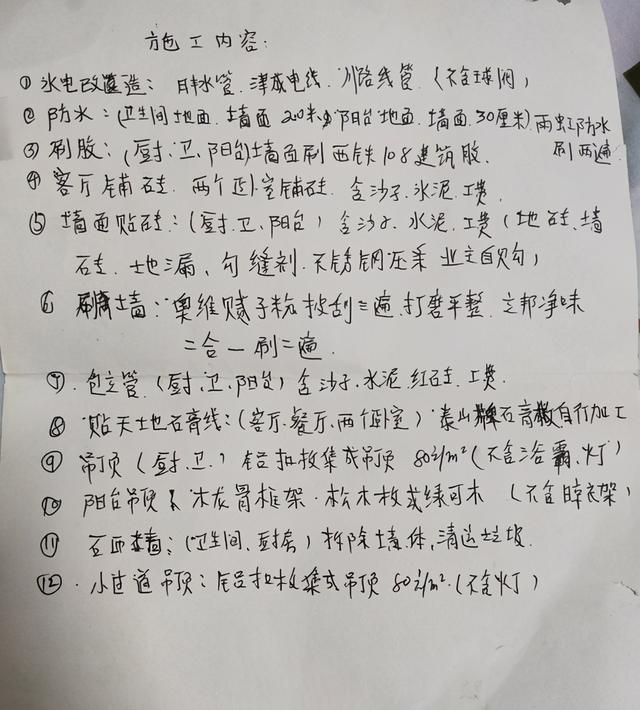 施工内容:
①水电改造: 日丰水管.津成电线.川路线管.(不含球阀)
②防水:(卫生间地面.墙面200米.阳台地面.墙面.30厘米)雨虹防水
刷两遍
③刷胶:(厨.卫.阳台)墙面刷西铁108建筑胶.
④客厅铺砖.两个卧室铺砖.含沙子.水泥.工费.
⑤墙面贴砖:(厨.卫.阳台)含沙子.水泥.工费(地砖、墙
砖.地漏、勾缝剂.不锈钢压条 业主自购)
⑥刷墙:奥维腻子粉披刮三遍.打磨平整.立邦净味
二合一刷二遍.
⑦.包立管.(厨.卫.阳台)含沙子.水泥.红砖.工费.
⑧贴天地石膏线:(客厅.餐厅.两个卧室)泰山牌石膏板自行加工
⑨吊顶(厨.卫.)铝扣板集成吊顶 80元/m²(不含浴霸、灯)
⑩阳台吊顶 木龙骨框架.松木板或绿可木 (不含晾衣架)
⑪砸墙:(卫生间、厨房)拆除墙体,清运垃圾.
⑫.小过道吊顶:铝扣板集成吊顶 80元/m².(不含灯)